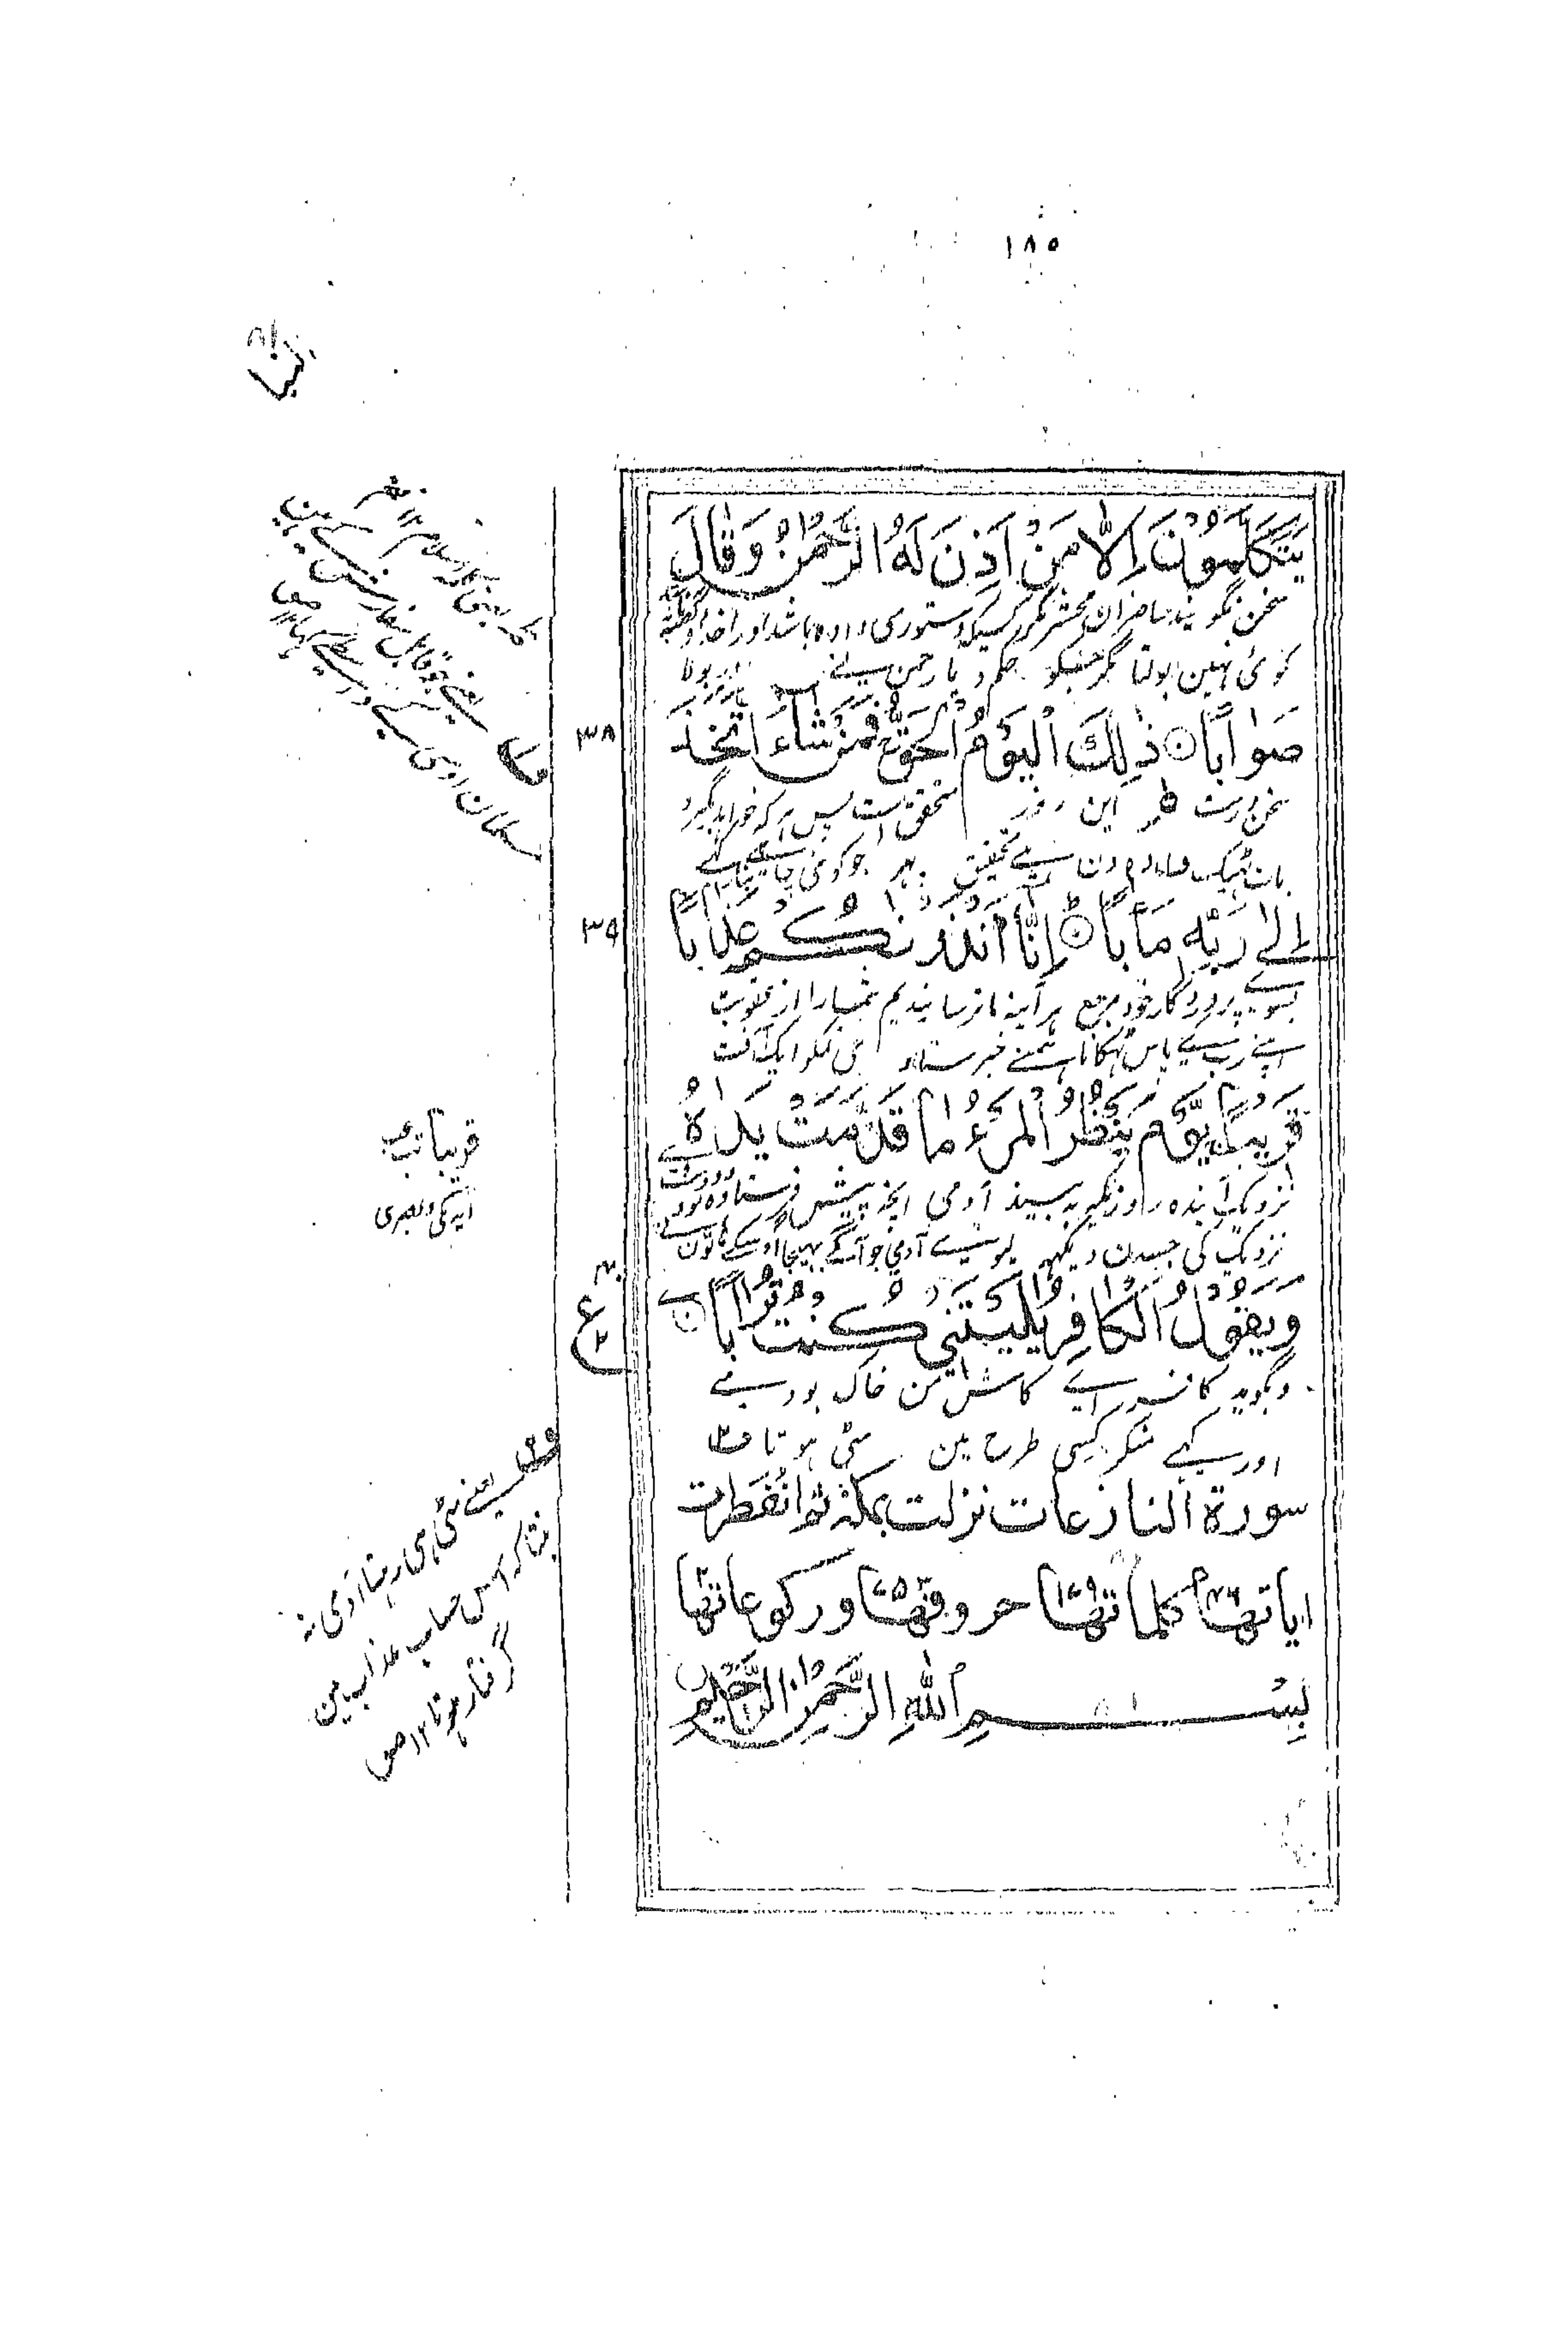 ١٨٥
النبا
يَتَكَلَّمُوْنَ اِلَّا مَنْ اَذِنَ لَهُ الرَّحْمٰنُ وَقَالَ
سخن نگویند حاضران محشر مگر کسیکه دستوری داده باشد اورا خدا و گفته
کوئی نہین بولتا مگر جسکو حکم دیا رحمن نے اور بولا
صَوَابًا ذٰلِكَ الْيَوْمُ الْحَقُّ فَمَنْ شَآءَ اتَّخَذَ
٣٨
سخن درست این روز متحقق است پس هر که خواهد بگیرد
بات ٹھیک وہ دن ہے تحقیق پہر جو کوئی چاہے
اِلٰى رَبِّهٖ مَاٰبًا اِنَّا اَنْذَرْنٰكُمْ عَذَابًا
٣٩
بسوے پروردگار خود مرجع هر آینه ما ترسانیدیم شمارا از عقوبت
اپنے رب کے پاس ٹہکانا ہمنے خبر سنادی تمکو ایک آفت
قَرِيْبًا يَّوْمَ يَنْظُرُ الْمَرْءُ مَا قَدَّمَتْ يَدٰهُ
نزدیک آینده روزیکه به بیند آدمی آنچه پیش فرستاده بود
نزدیک کی جسدن دیکہہ لیوے آدمی جو آگے بہیجا اوسکے ہاتون نے
وَيَقُوْلُ الْكَافِرُ يٰلَيْتَنِيْ كُنْتُ تُرَابًا
ع
وبگوید کافر اے کاش من خاک بودمے
اور کہے منکر کسی طرح مین مٹی ہوتا
سورة النازعات نزلت بمكة ثم انفطرت
اياتها كلماتها حروفها وركوعاتها
بِسْمِ اللّٰهِ الرَّحْمٰنِ الرَّحِيْمِ
قريبا
آیه مکی و بصری
یعنے مٹی ہی رہتا آدمی نہ
بنتا کہ اس حساب عذاب مین
گرفتار ہوتا